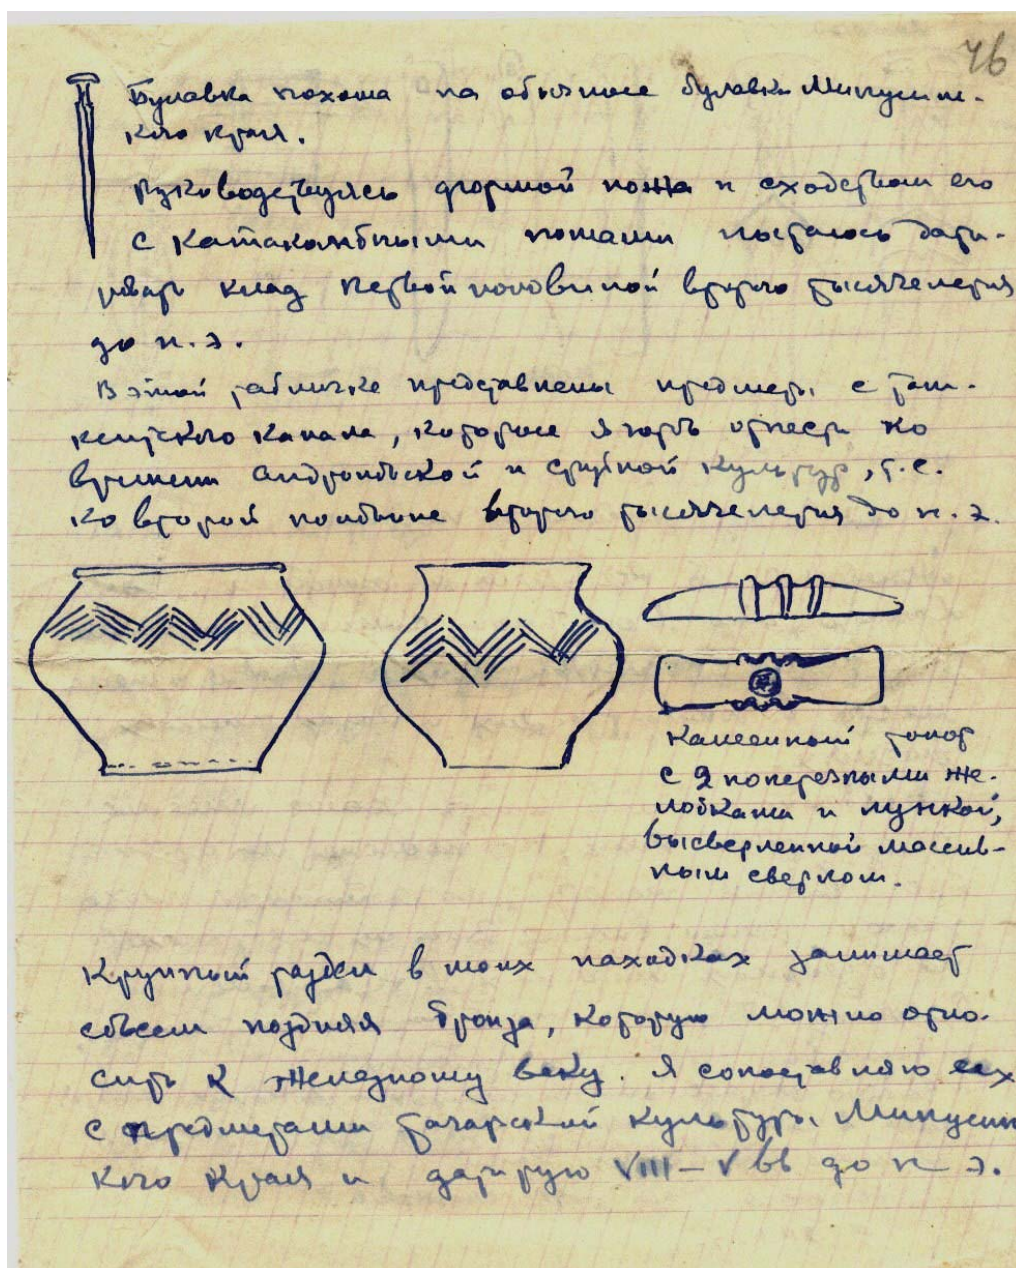 46
Булавка похожа на обычные булавки Минусинс-
кого края.
Руководствуясь формой ножа и сходством его
с катакомбными ножами пытаюсь дати-
ровать клад первой половиной второго тысячелетия
до н.э.
В этой табличке представлены предметы с Таш-
кентского канала, которые я готов отнести ко
времени андроновской и срубной культур, т.е.
ко второй половине второго тысячелетия до н.э.
Каменный топор
с 2 поперечными же-
лобками и лункой,
высверленной массив-
ным сверлом.
Крупный раздел в моих находках занимает
совсем поздняя бронза, которую можно отно-
сить к железному веку. Я сопоставляю
с предметами тагарской культуры Минусинс
кого края и датирую VIII – V вв до н э.